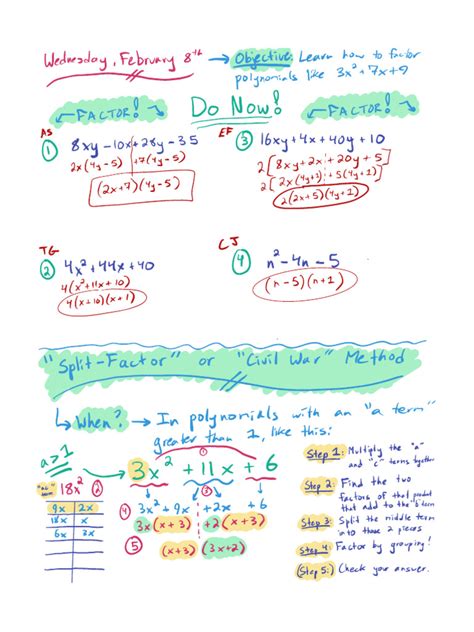 Wednesday, February 8th → Objective: Learn how to factor
polynomials like 3x² + 7x + 9
FACTOR! Do Now! FACTOR!
AS
① 8xy - 10x + 28y - 35
2x(4y-5) + 7(4y-5)
(2x+7)(4y-5)
EF
③ 16xy + 4x + 40y + 10
2[8xy + 2x + 20y + 5]
2[2x(4y+1) + 5(4y+1)]
2(2x+5)(4y+1)
TG
② 4x² + 44x + 40
4(x² + 11x + 10)
4(x+10)(x+1)
CJ
④ n² - 4n - 5
(n-5)(n+1)
"Split-Factor" or "Civil War" Method
When? → In polynomials with an "a term"
greater than 1, like this:
a>1
①
3x² + 11x + 6
18x² ②
9x 2x
18x x
6x 3x
③
④ 3x² + 9x + 2x + 6
3x(x+3) + 2(x+3)
⑤ (x+3)(3x+2)
Step 1: Multiply the "a"
and "c" terms together
Step 2: Find the two
factors of that product
that add to the b term
Step 3: Split the middle term
into those 2 pieces
Step 4: Factor by grouping!
(Step 5:) Check your answer.